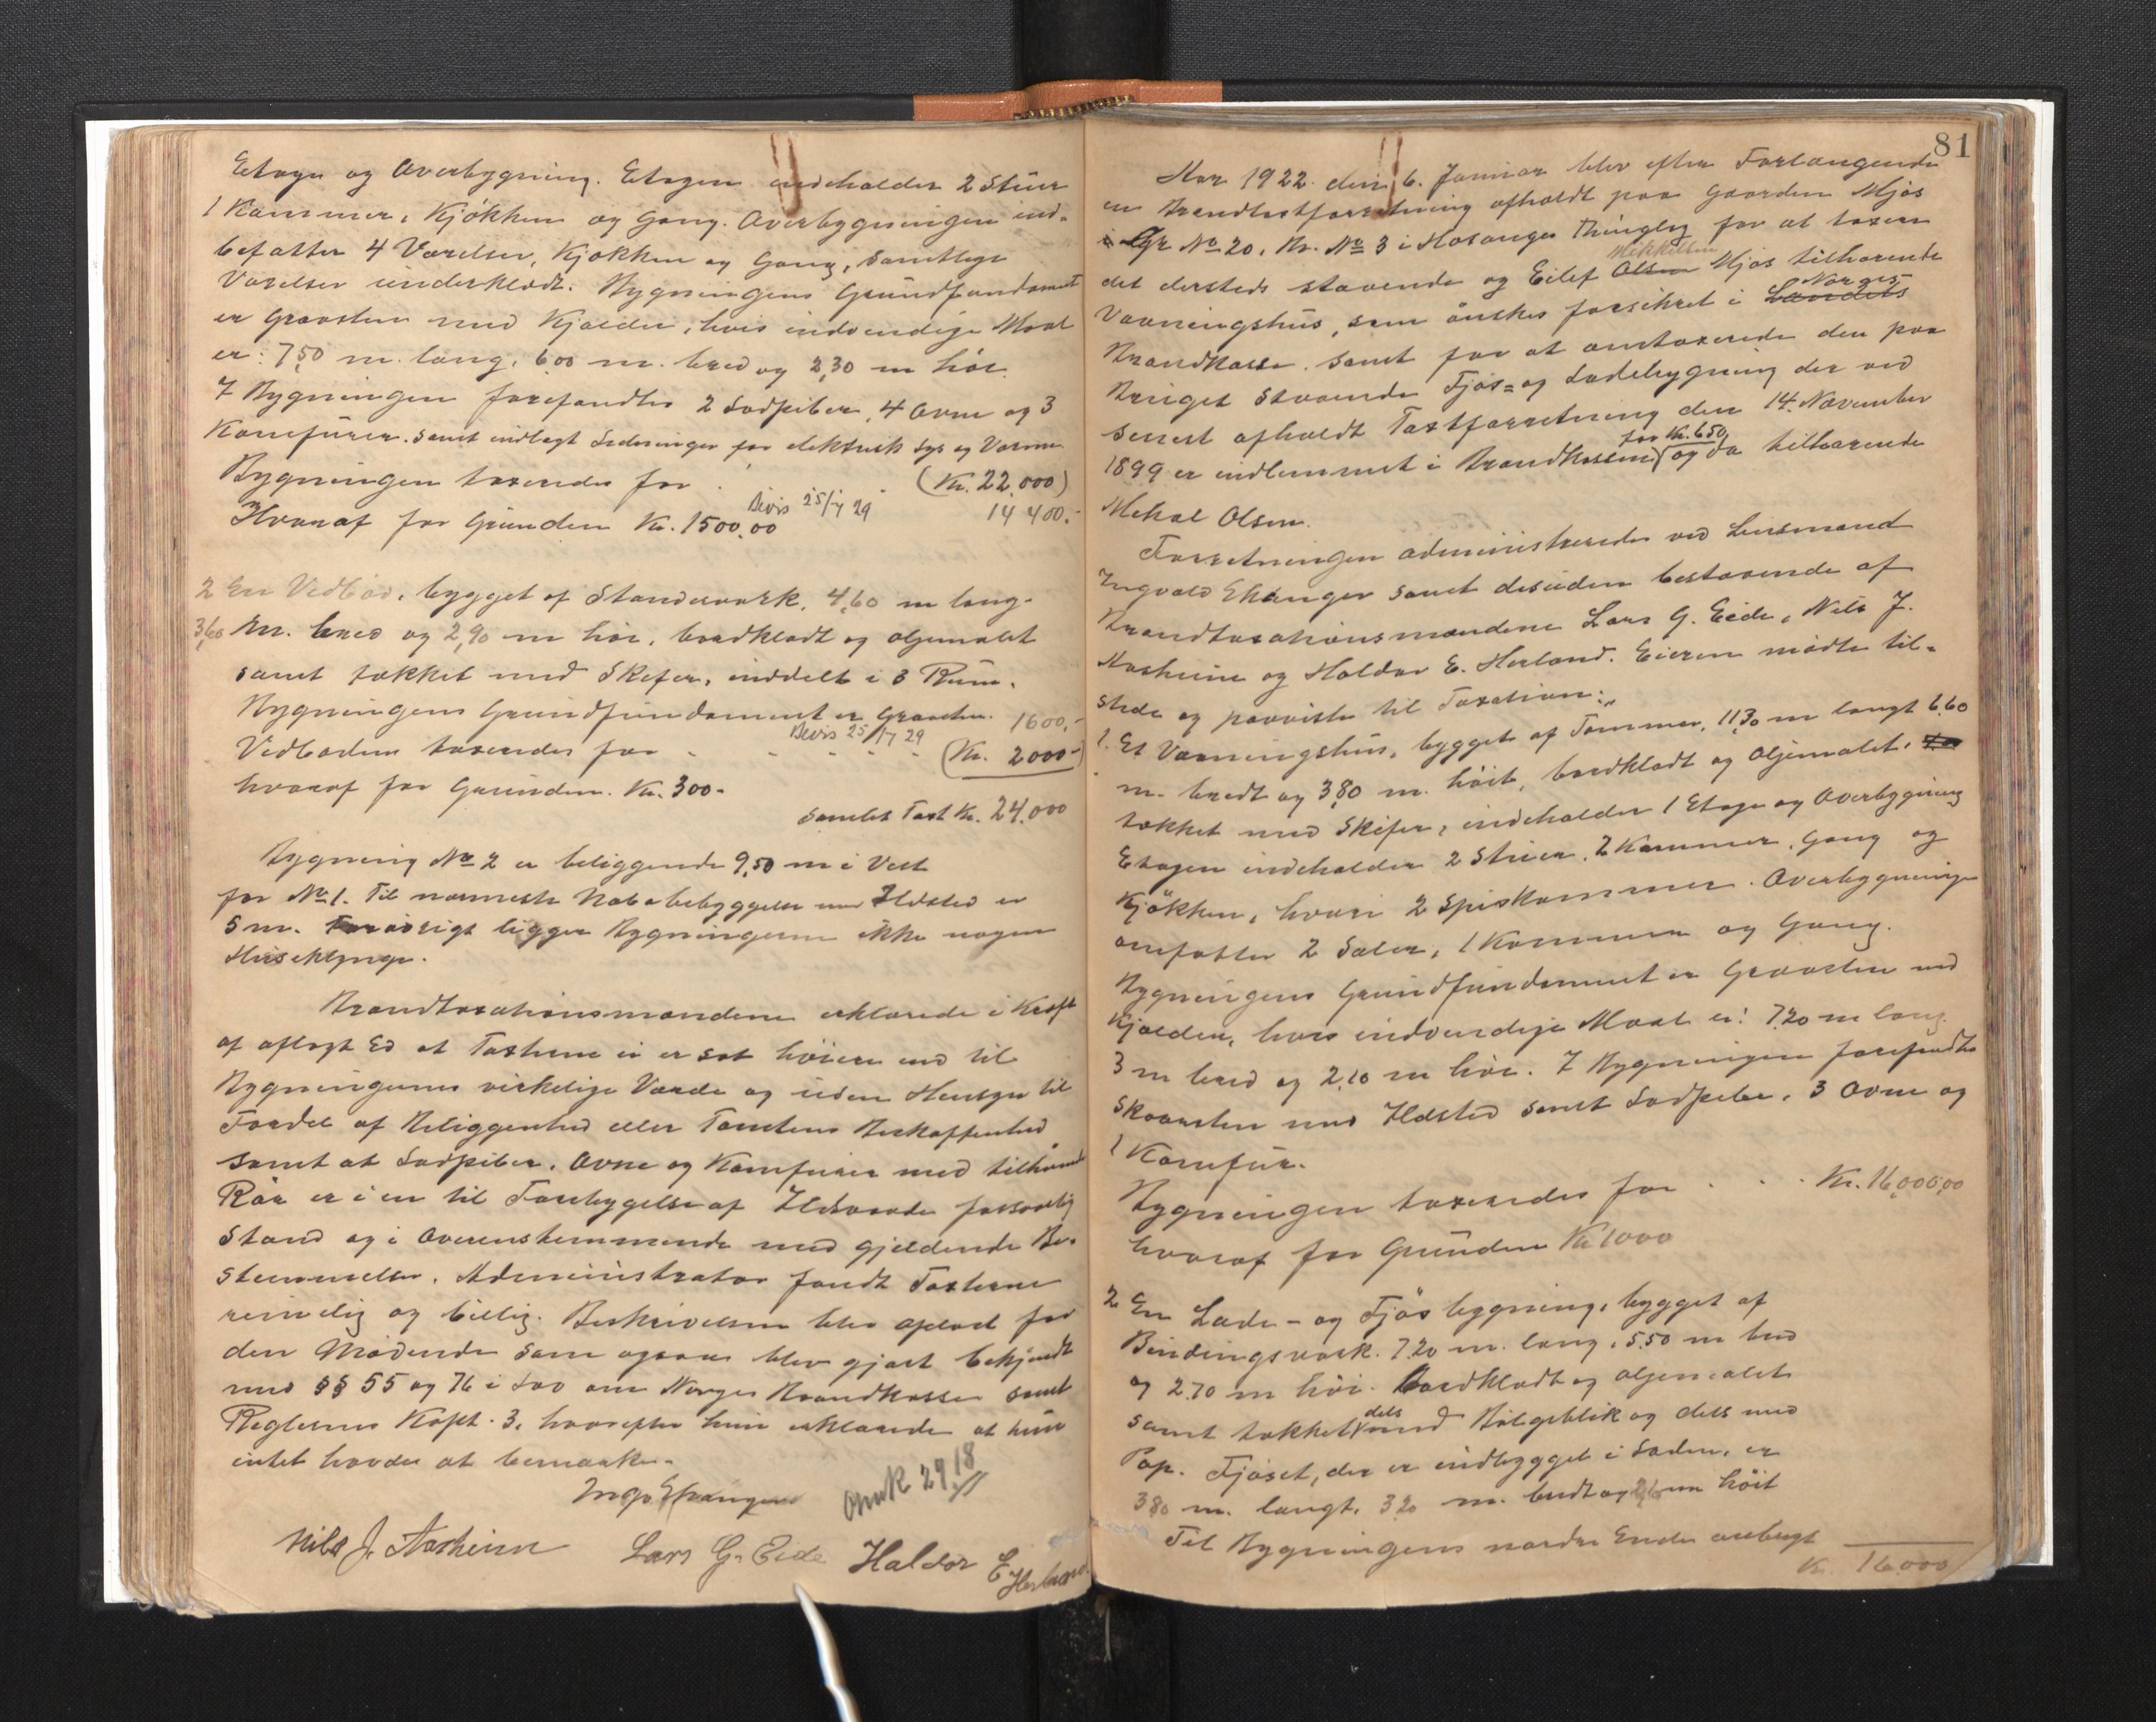 Etage og Overbygning. Etagen indeholder 2 Stuer
1 Kammer, Kjøkken og Gang. Overbygningen ind-
befatter 4 Værelser, Kjøkken og Gang, samtlige
Værelser underklædt. Bygningens Grundfundament
er Graasten med Kjælder, hvis indvendige Maal
er: 7,50 m. lang, 6,00 m. bred og 2,30 m høi.
I Bygningen forefandtes 2 Sodpiber, 4 Ovne og 3
Komfurer. samt indlagt Ledninger for elektrisk Lys og Varme
Bygningen taxeredes for . (Kr. 22.000)
Hvoraf for Grunden Kr. 1500,00 Bevis 25/7 29 14 400.-
2 En Vedbod, bygget af Stenderværk, 4,60 m lang-
3,60 m. bred og 2,90 m høi, bordklædt og oljemalet
samt tækket med Skifer, inddelt i 3 Rum.
Bygningens Grundfundament er Graasten. 1600,-
Bevis 25/7 29
Vedboden taxeredes for - - - - - (Kr. 2000-)
hvoraf for Grunden. Kr. 300-
Samlet Taxt Kr. 24.000
Bygning No 2 er beliggende 9,50 m i Vest
for No 1. Til nærmeste Nabobebyggelse med Ildsted er
5 m. Forøvrigt ligger Bygningerne ikke nogen
Huseklynge.
Brandtaxationsmændene erklærede i Kraft
af aflagt Ed at Taxterne ei er sat høiere end til
Bygningernes virkelige Værde og uden Hensyn til
Fordel af Beliggenhed eller Tomtens Beskaffenhed
samt at Sodpiber, Ovne og Komfurer med tilhørende
Rør er i en til Forebyggelse af Ildsvaade forsvarlig
Stand og i Overensstemmende med gjældende Be-
stemmelser. Administrator fandt Taxterne
rimelig og billig. Beskrivelsen blev oplæst for
den Mødende som ogsaa blev gjort bekjendt
med §§ 55 og 76 i Lov om Norges Brandkasse samt
Reglernes Kapt. 3, hvorefter hun erklærede at hun
intet havde at bemærke.
Ingv. Ekanger
Omk 29 18/11
Nils J. Aasheim Lars G. Eide Haldor E Herland
81
Aar 1922 den 6. Januar blev efter Forlangende
en Brandtaxtforretning afholdt paa Gaarden Mjøs
i Gr No 20, Br. No 3 i Hosanger Thinglag for at taxere
Mikkelsen
det dersteds staaende og Eilef Olsen Mjøs tilhørende
Norges
Vaaningshus, som ønskes forsikret i Landets
Brandkasse, samt for at omtaxerede den paa
Bruget staaende Fjøs- og Ladebygning der ved
senest afholdt Taxtforretning den 14. November
for Kr. 650
1899 er indlemmet i Brandkassen og da tilhørende
Mikal Olsen.
Forretningen administreredes ved Lensmand
Ingvald Ekanger samt desuden bestaaende af
Brandtaxationsmændene Lars G. Eide, Nils J.
Aasheim og Haldor E. Herland. Eieren mødte til-
stede og paaviste til Taxation:
1. Et Vaaningshus, bygget af Tømmer, 11,30 m langt 6,60
m. bredt og 3,80 m. høit, bordklædt og Oljemalet,
tækket med Skifer, indeholder 1 Etage og Overbygning
Etagen indeholder 2 Stuer, 2 Kammer, Gang og
Kjøkken, hvori 2 Spiskammer. Overbygningen
omfatter 2 Saler, 1 Kammer og Gang.
Bygningens Grundfundament er Graasten med
Kjælder, hvis indvendige Maal er: 7,20 m lang.
3 m bred og 2,10 m høi. I Bygningen forefandtes
Skorsten med Ildsted samt Sodpibe, 3 Ovne og
1 Komfur.
Bygningen taxeredes for . . . Kr. 16,000,00
hvoraf for Grunden Kr 1000
2 En Lade- og Fjøsbygning, bygget af
Bindingsværk. 7,20 m. lang, 5,50 m bred
og 2,70 m høi. Bordklædt og oljemalet
dels
samt tækket med Bølgeblik og dels med
Pap. Fjøset, der er indbygget i Laden, er
3,80 m. langt, 3,20 m. bredt og m høit
Til Bygningens nordre Ende ombygt
Kr. 16,000